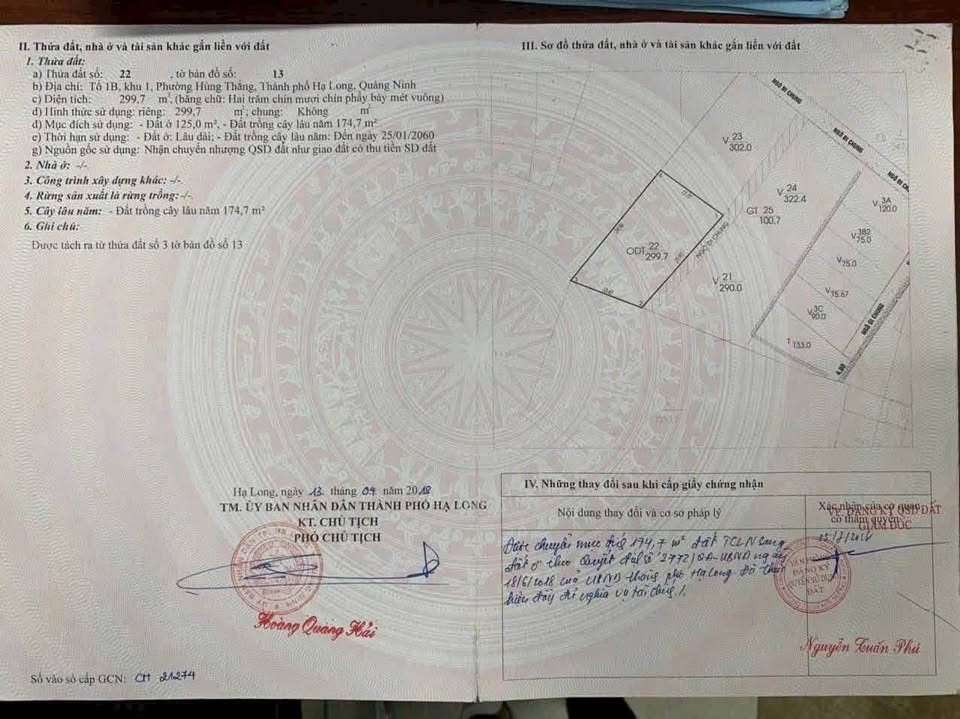 II. Thửa đất, nhà ở và tài sản khác gắn liền với đất
1. Thửa đất:
a) Thửa đất số: 22 , tờ bản đồ số: 13
b) Địa chỉ: Tổ 1B, khu 1, Phường Hùng Thắng, Thành phố Hạ Long, Quảng Ninh
c) Diện tích: 299,7 m², (bằng chữ: Hai trăm chín mươi chín phẩy bảy mét vuông)
d) Hình thức sử dụng: riêng: 299,7 m²; chung: Không m²
đ) Mục đích sử dụng: - Đất ở 125,0 m², - Đất trồng cây lâu năm 174,7 m²
e) Thời hạn sử dụng: - Đất ở: Lâu dài; - Đất trồng cây lâu năm: Đến ngày 25/01/2060
g) Nguồn gốc sử dụng: Nhận chuyển nhượng QSD đất như giao đất có thu tiền SD đất
2. Nhà ở: -/-
3. Công trình xây dựng khác: -/-
4. Rừng sản xuất là rừng trồng: -/-
5. Cây lâu năm: - Đất trồng cây lâu năm 174,7 m²
6. Ghi chú:
Được tách ra từ thửa đất số 3 tờ bản đồ số 13
Hạ Long, ngày 13 tháng 04 năm 2018
TM. ỦY BAN NHÂN DÂN THÀNH PHỐ HẠ LONG
KT. CHỦ TỊCH
PHÓ CHỦ TỊCH
Hoàng Quang Hải
Số vào sổ cấp GCN: CH 21274
III. Sơ đồ thửa đất, nhà ở và tài sản khác gắn liền với đất
NGÕ ĐI CHUNG
NGÕ ĐI CHUNG
NGÕ ĐI CHUNG
V 23 302.0
V 24 322.4
V 3A 120.0
GT 25 100.7
V 3B2 75.0
ODT 22 299.7
NGÕ ĐI CHUNG
V 75.0
V 21 290.0
V 75.67
V 3C 90.0
NGÕ ĐI CHUNG
T 133.0
4.50
IV. Những thay đổi sau khi cấp giấy chứng nhận
Nội dung thay đổi và cơ sở pháp lý
Xác nhận của cơ quan có thẩm quyền
VP. ĐĂNG KÝ QSD ĐẤT
GIÁM ĐỐC
Được chuyển mục đích 174,7 m² đất TCLN sang
đất ở theo Quyết định số 2772/QĐ-UBND ngày
18/6/2018 của UBND thành phố Hạ Long. Đã thực
hiện đầy đủ nghĩa vụ tài chính /.
VĂN PHÒNG
ĐĂNG KÝ
QUYỀN SỬ DỤNG
ĐẤT
Nguyễn Tuấn Phú